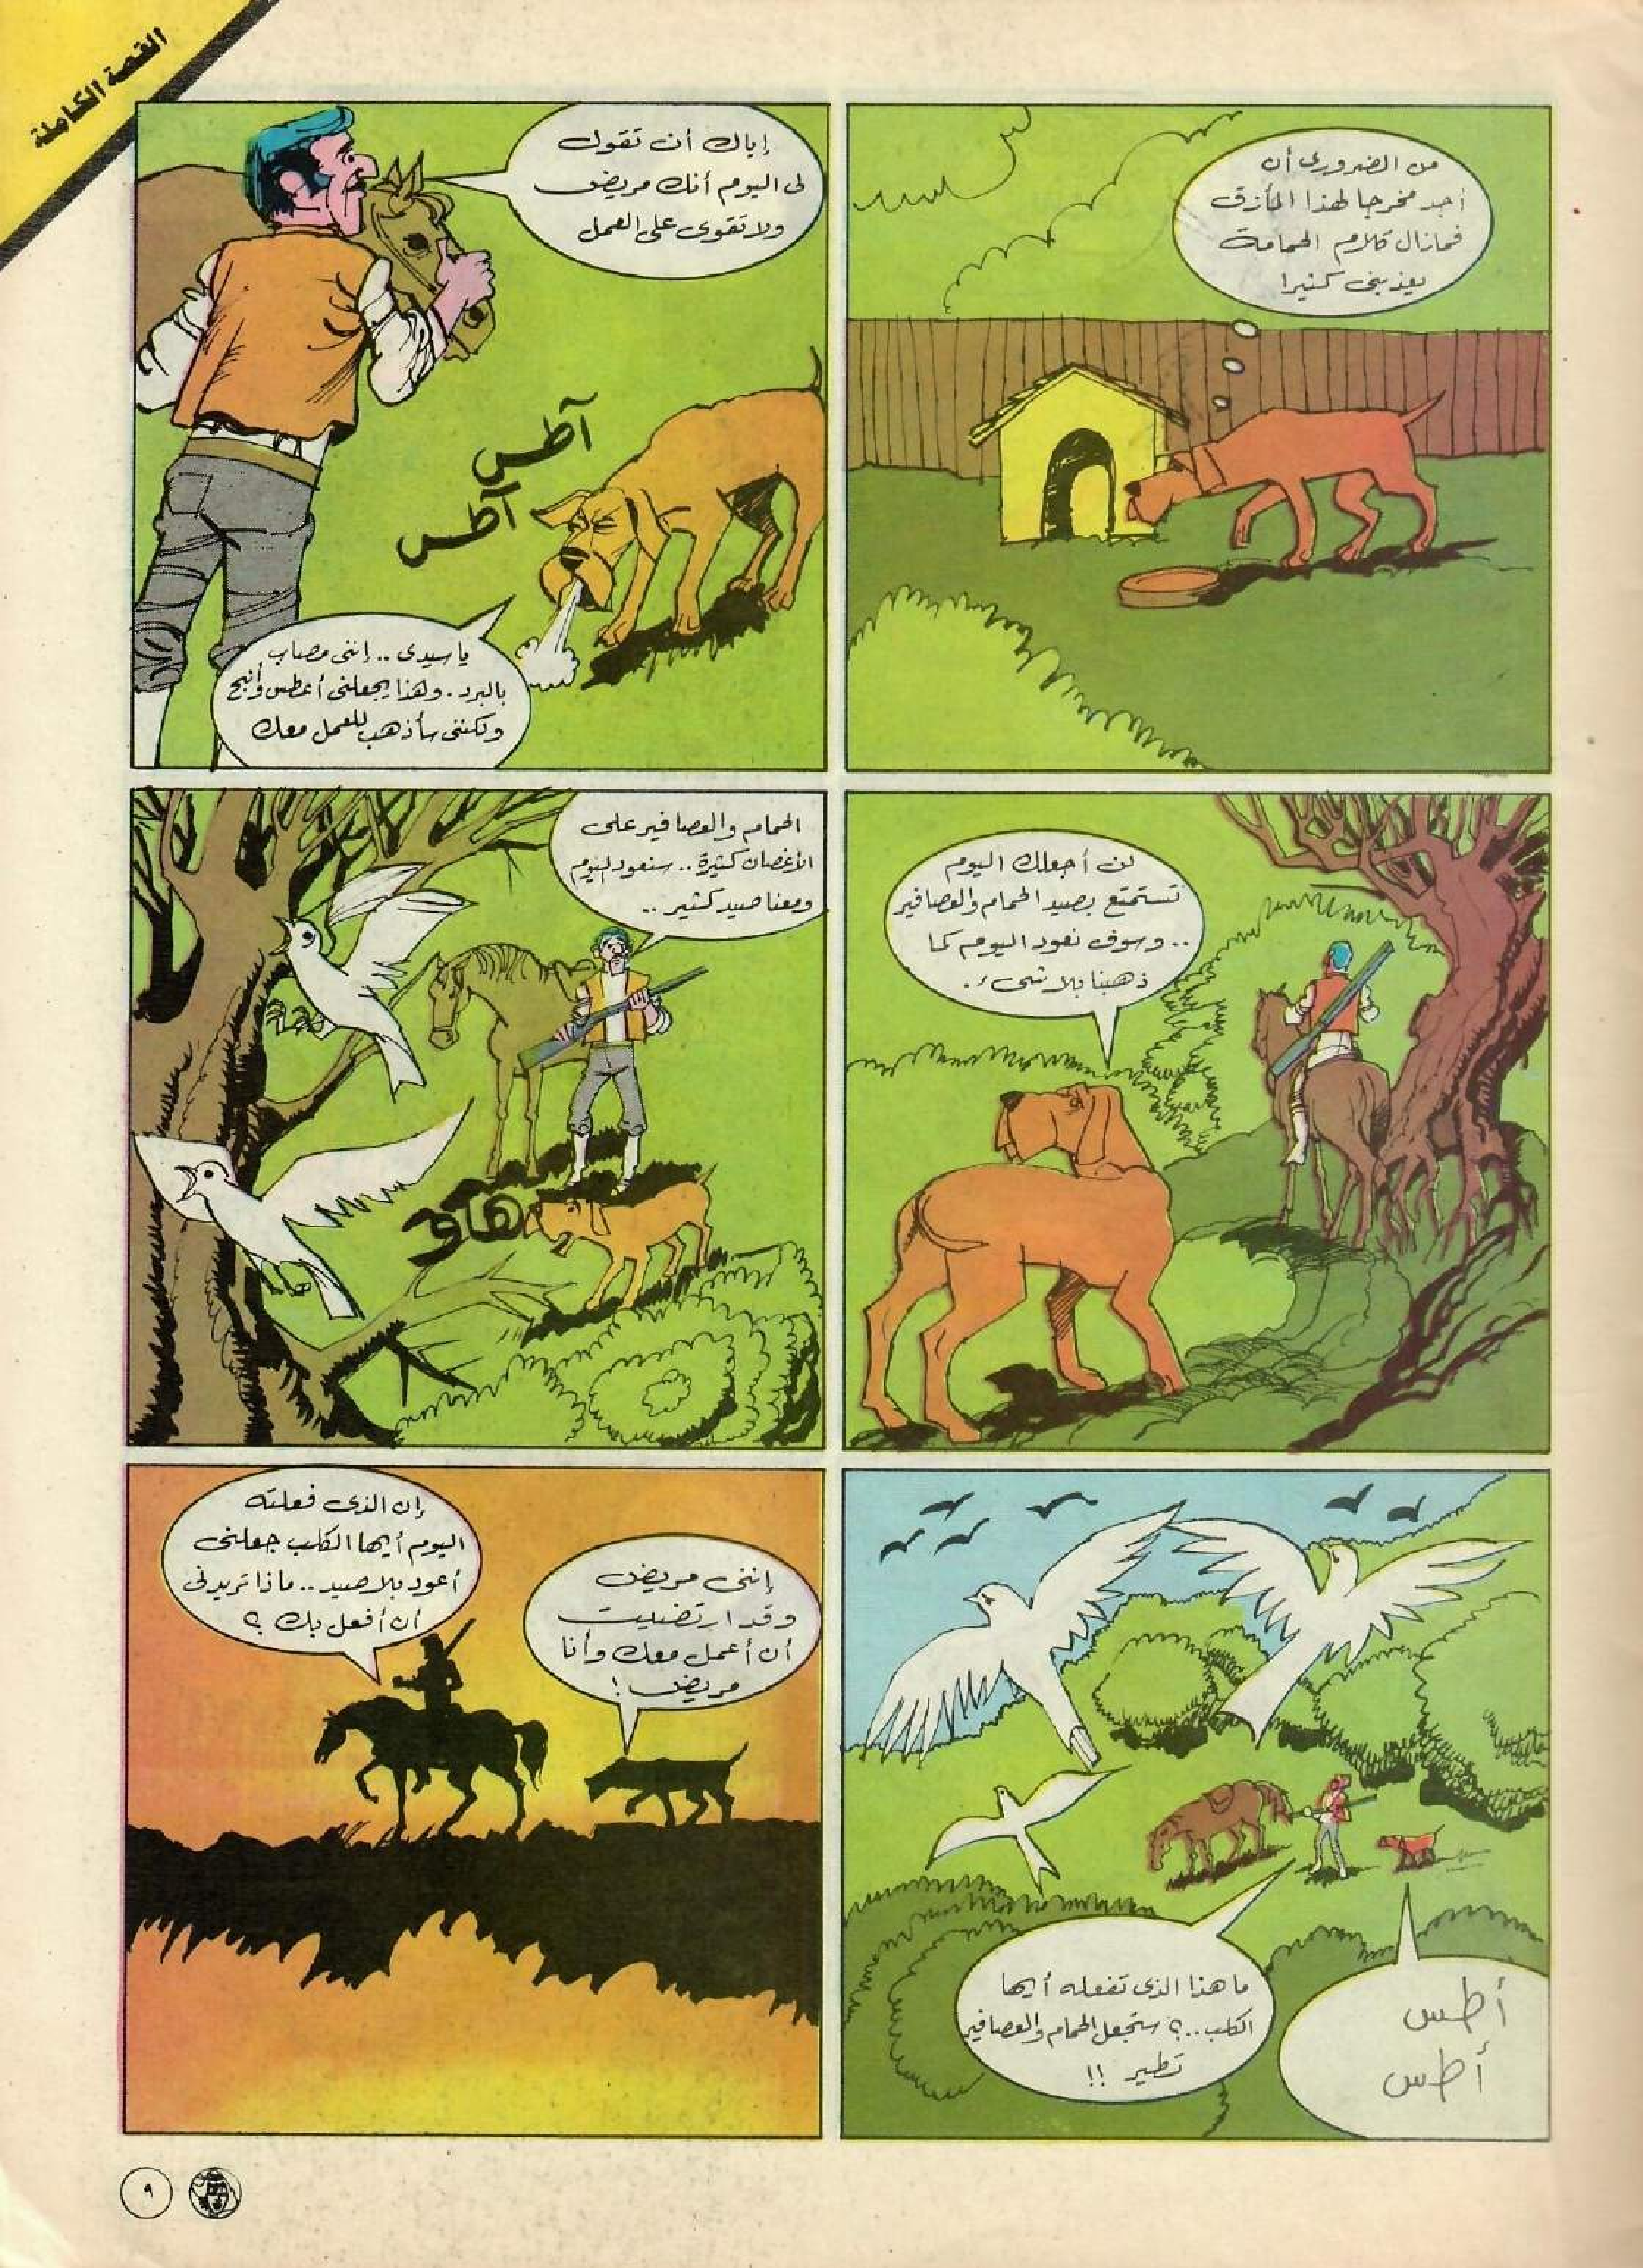 القصة الكاملة
من الضرورى أن
أجد مخرجا لهذا المأزق
فمازال كلام الحمامة
يعذبنى كثيرا
إياك أن تقول
لى اليوم أنك مريض
ولا تقوى على العمل
آطس
آطس
يا سيدى .. إننى مصاب
بالبرد . وهذا يجعلنى أعطس وأنبح
ولكننى سأذهب للعمل معك
لن أجعلك اليوم
تستمتع بصيد الحمام والعصافير
.. وسوف نعود اليوم كما
ذهبنا بلا شىء .
الحمام والعصافير على
الأغصان كثيرة .. سنعود اليوم
ومعنا صيد كثير ..
هاو
ما هذا الذى تفعله أيها
الكلب ..؟ ستجعل الحمام والعصافير
تطير !!
أطس
أطس
إن الذى فعلته
اليوم أيها الكلب جعلنى
أعود بلا صيد .. ماذا تريدنى
أن أفعل بك ؟
إننى مريض
وقد ارتضيت
أن أعمل معك وأنا
مريض !
٩